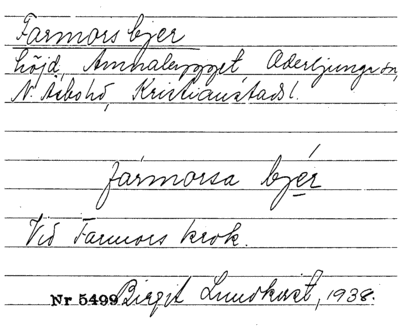 Farmors bjer
höjd, Ammaleryggel Oderljunga sn,
N. Åsbohd, Kristianstads l.
fármorsa bjér
Vid Farmors krok.
Nr 5499 Birgit Lundkvist, 1938.